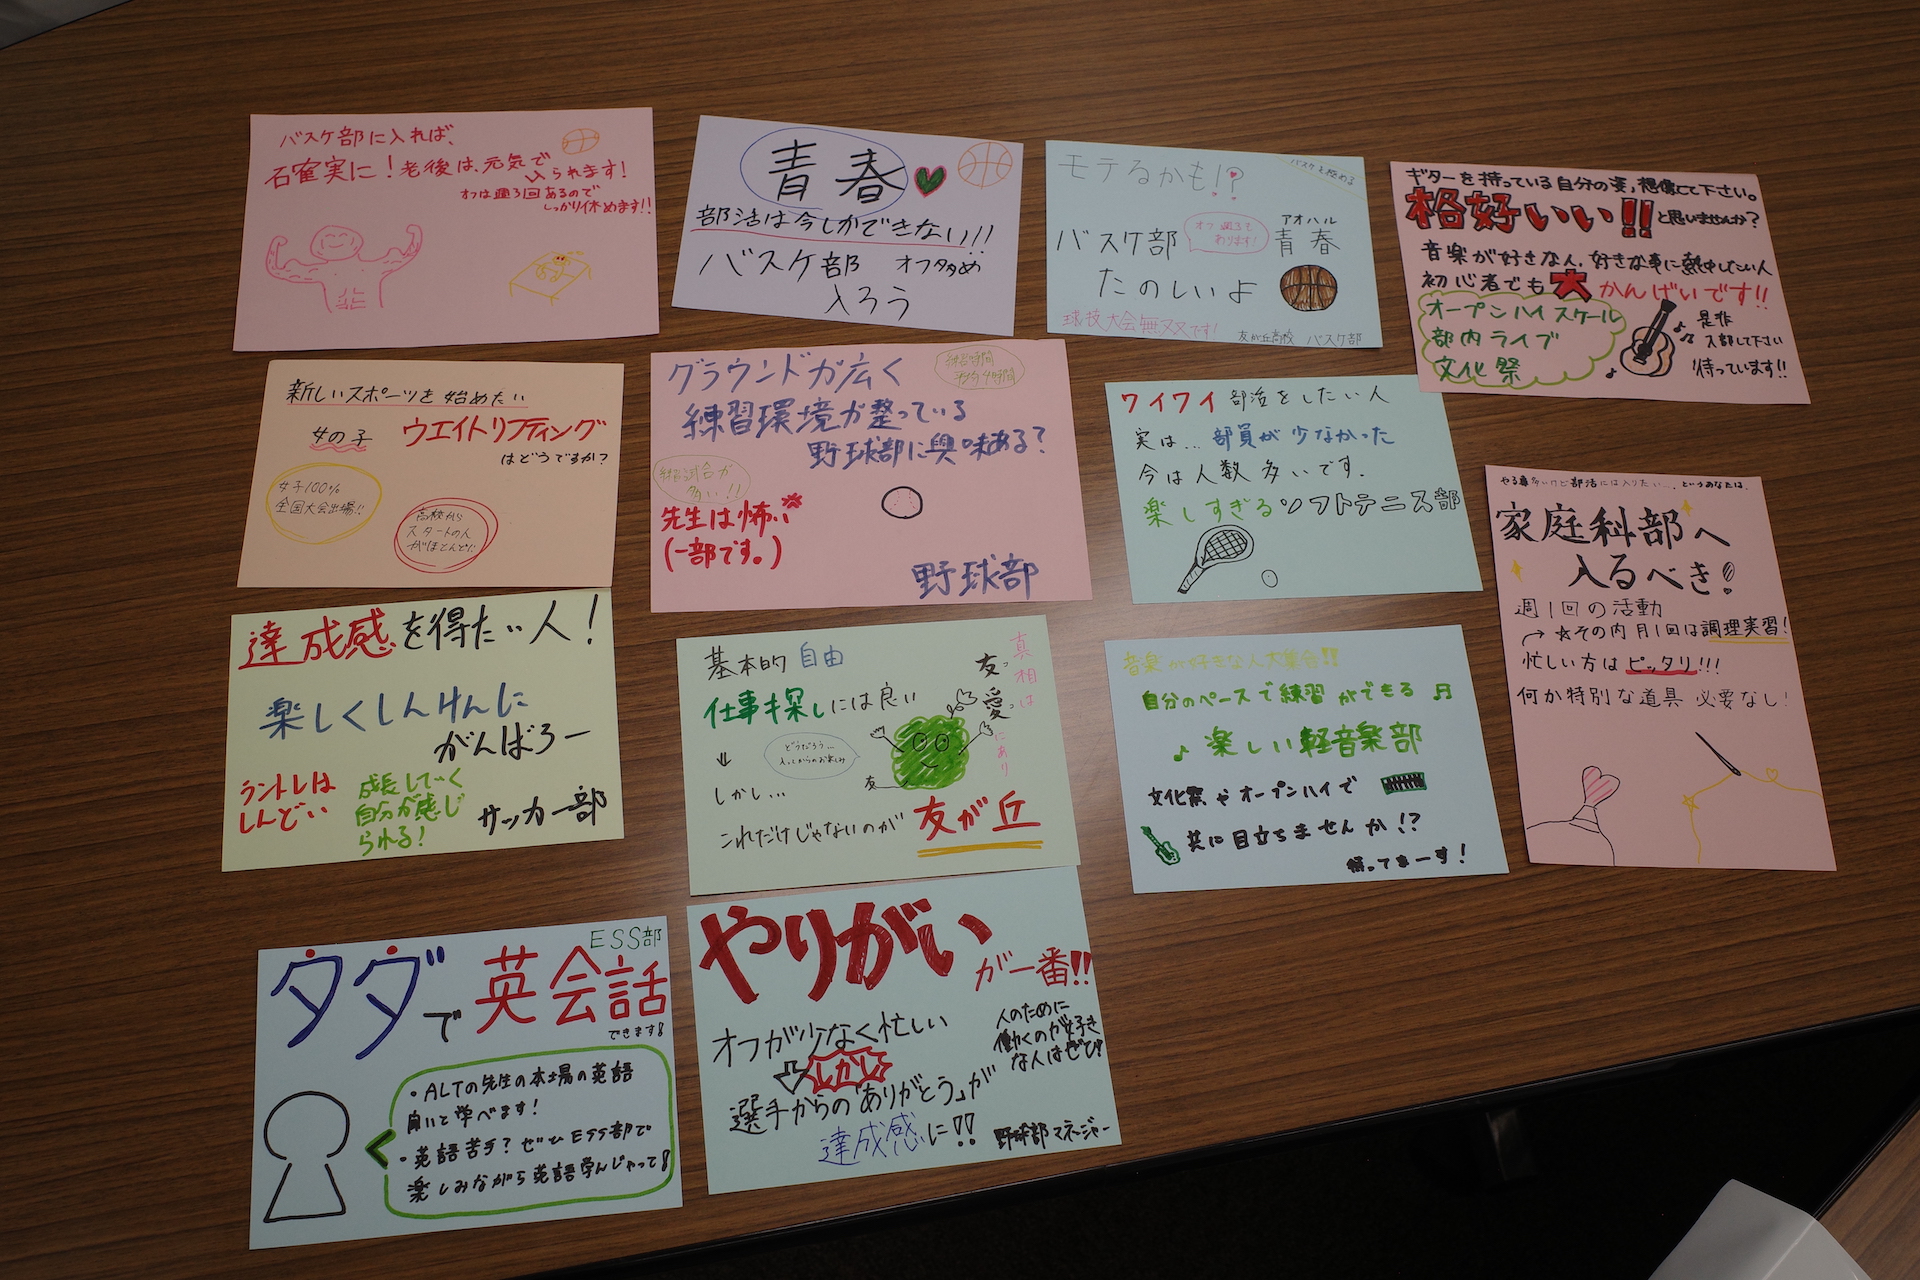 バスケ部に入れば、
確実に!老後は、元気で
いられます!
オフは週3回あるので
しっかり休めます!!
青春
部活は今しかできない!!
バスケ部 オフ多め
入ろう
モテるかも!?
バスケを極める
オフ週3で
あります!
アオハル
バスケ部 青春
たのしいよ
球技大会無双です!
友が丘高校 バスケ部
ギターを持っている自分の姿,想像して下さい。
格好いい!!と思いませんか?
音楽が好きな人,好きな事に熱中したい人
初心者でも大かんげいです!!
オープンハイスクール
部内ライブ
文化祭
是非
入部して下さい
待っています!!
新しいスポーツを始めたい
女の子 ウエイトリフティング
はどうですか?
女子100%
全国大会出場!!
高校から
スタートの人
がほとんど
グラウンドが広く
練習時間
平均4時間
練習環境が整っている
野球部に興味ある?
練習試合が
多い!!
先生は怖い
(一部です。)
野球部
ワイワイ部活をしたい人
実は…部員が少なかった
今は人数多いです.
楽しすぎるソフトテニス部
やる事多いけど部活には入りたい…,というあなたは,
家庭科部へ
入るべき!
週1回の活動
☆その内月1回は調理実習!
忙しい方はピッタリ!!!
何か特別な道具 必要なし!
達成感を得たい人!
楽しくしんけんに
がんばろー
ラントレは
しんどい
成長していく
自分が感じ
られる!
サッカー部
基本的自由
仕事探しには良い
しかし…
どうだろう…
入ってからのお楽しみ
友
これだけじゃないのが 友が丘
真相は
友っ
愛っ
にあり
音楽が好きな人大集合!!
自分のペースで練習ができる♬
♪楽しい軽音楽部
文化祭やオープンハイで
共に目立ちませんか!?
待ってまーす!
ESS部
タダで英会話
できます!
・ALTの先生の本場の英語
・英語苦手?ぜひESS部で
楽しみながら英語学んじゃって!
やりがい
が一番!!
オフが少なく忙しい
しかし
選手からの「ありがとう」が
達成感に!?
人のために
働くのが好き
な人はぜひ
野球部マネージャー